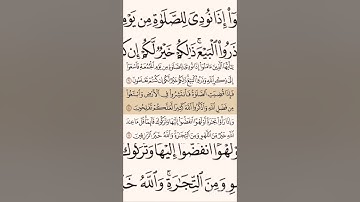 وٓا۟ إِذَا نُودِىَ لِلصَّلَوٰةِ مِن يَوْمِ
ذَرُوا۟ ٱلْبَيْعَ ۚ ذَٰلِكُمْ خَيْرٌ لَّكُمْ إِن كُ
يَٰٓأَيُّهَا ٱلَّذِينَ ءَامَنُوٓا۟ إِذَا نُودِىَ لِلصَّلَوٰةِ مِن يَوْمِ ٱلْجُمُعَةِ فَٱسْعَوْا۟
إِلَىٰ ذِكْرِ ٱللَّهِ وَذَرُوا۟ ٱلْبَيْعَ ۚ ذَٰلِكُمْ خَيْرٌ لَّكُمْ إِن كُنتُمْ تَعْلَمُونَ ٩
فَإِذَا قُضِيَتِ ٱلصَّلَوٰةُ فَٱنتَشِرُوا۟ فِى ٱلْأَرْضِ وَٱبْتَغُوا۟
مِن فَضْلِ ٱللَّهِ وَٱذْكُرُوا۟ ٱللَّهَ كَثِيرًا لَّعَلَّكُمْ تُفْلِحُونَ ١٠
وَإِذَا رَأَوْا۟ تِجَٰرَةً أَوْ لَهْوًا ٱنفَضُّوٓا۟ إِلَيْهَا وَتَرَكُوكَ قَآئِمًا ۚ قُلْ مَا عِندَ
ٱللَّهِ خَيْرٌ مِّنَ ٱللَّهْوِ وَمِنَ ٱلتِّجَٰرَةِ ۚ وَٱللَّهُ خَيْرُ ٱلرَّٰزِقِينَ ١١
وْ لَهْوًا ٱنفَضُّوٓا۟ إِلَيْهَا وَتَرَكُوكَ
وِ وَمِنَ ٱلتِّجَٰرَةِ ۚ وَٱللَّهُ خَ